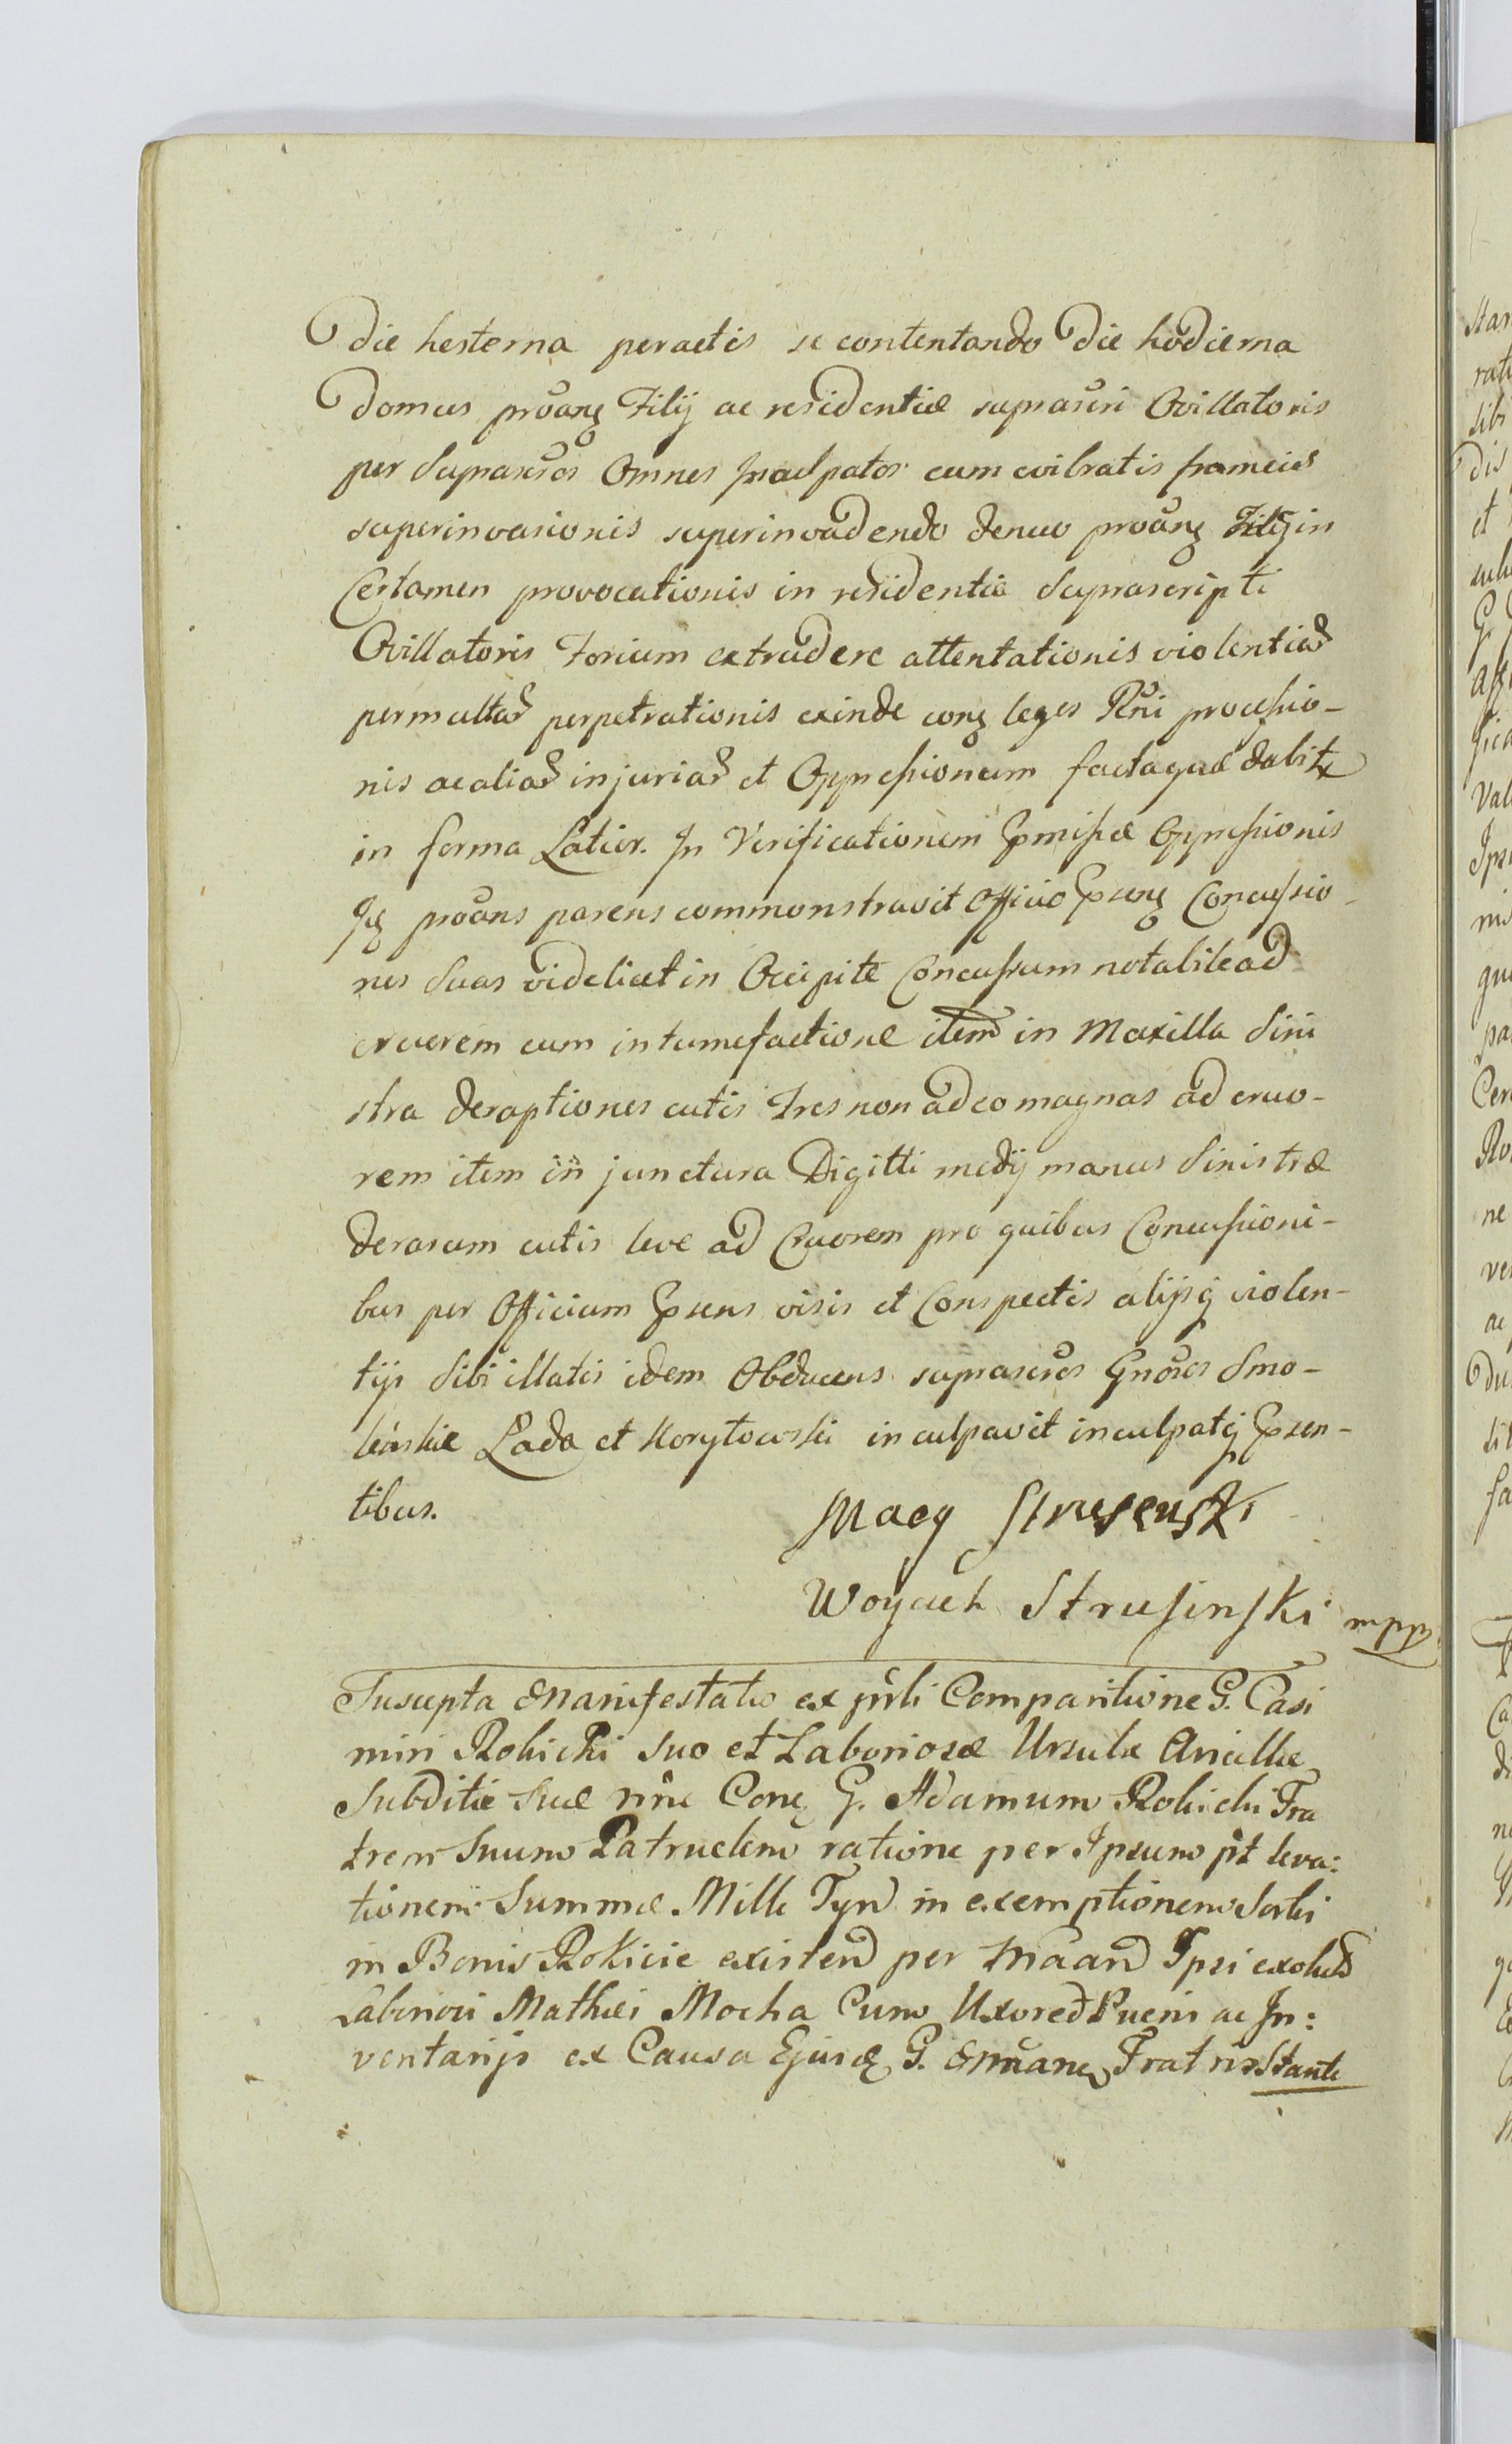 die hesterna peractis se contentando die hodierna
domus proãnς Filij ac residentiæ suprascri Ovillatoris
per Suprascros Omnes Inculpatos cum evibratis frameis
superinvasionis superinvadendo denuo proãnς Filij in
Certamen provocationis in residentia Suprascripti
Ovillatoris Forium extrudere attentationis violentias
permultas perpetrationis exinde conς leges Rñi processio-
nis ac alias injurias et Oppressionum factaque dabitx
in forma Latior. In Verificationem Pmissæ Oppressionis
Iς proãns parens commonstravit Officio Psenς Concussio-
nes Suas videlicet in Occipite Concussum notabile ad
cruerem cum intumefactione item in Maxilla Sini
stra deraptiones cutis Tres non adeo magnas ad cruo-
rem item in junctura Digitti medij manus Sinistræ
derasum cutis leve ad Cruorem pro quibus Concussioni-
bus per Officium Psens visis et Conspectis alijsq violen-
tijs Sibi illatis idem Obducens suprascros Gnosos Smo-
leńskie Lada et Korytowski inculpavit inculpatq Psen-
tibus.
Macy Strusenski
Woyciech Strusinski mpp
Suscepta Manifestatio ex prsli Comparitione G. Casi
miri Rokicki suo et Laboriosæ Ursulæ Ancillæ
Subditæ suæ nne Conς G. Adamum Rokicki Fra
trem Suum Patruelem ratione per Ipsum pt leva:
tionem Summæ Mille Tyn in exemptionem Sortis
in Bonis Rokicie existen per Maan Ipsi exolut
Laboriosi Mathæi Mocha Cum Uxore Pueris ac In:
ventarijs ex Causa Ejusd G. Mãnς Fratris Stante
Star
rati
sibi
dis
et
G
Vale
Ipsi
nis
pa
Cer
Ro
ne
ac
du
fa